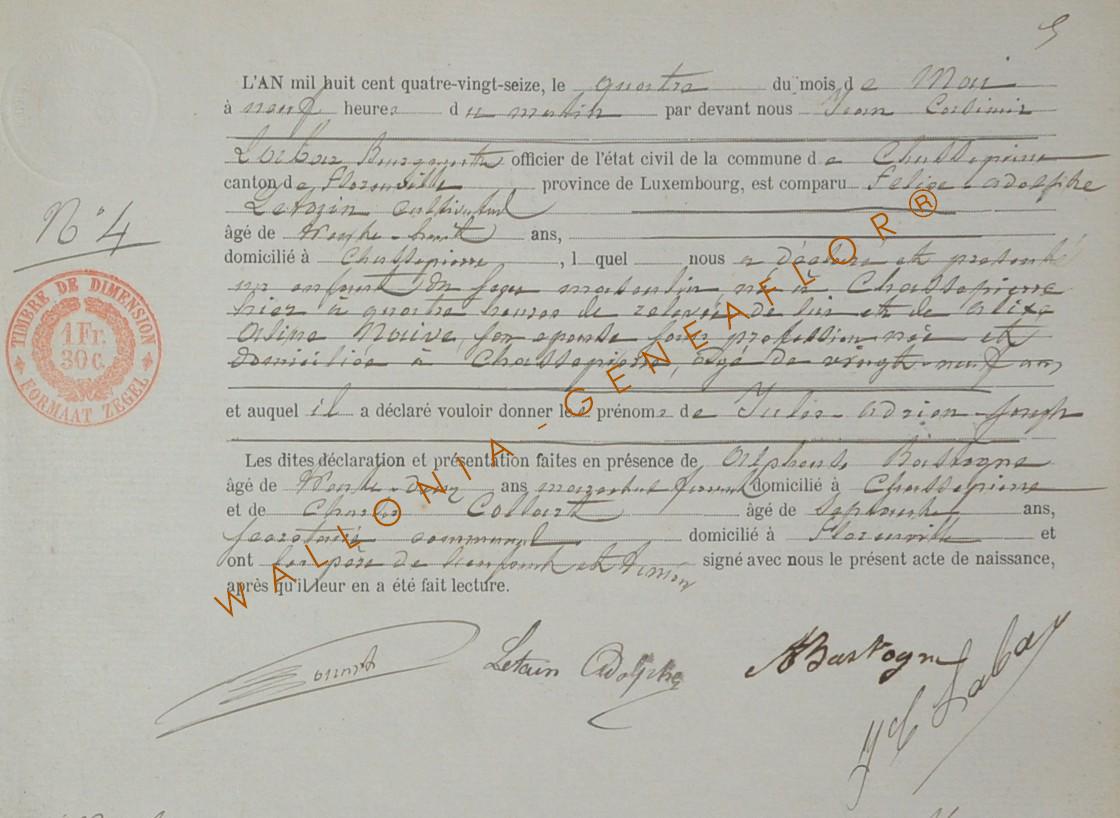 5
L'AN mil huit cent quatre-vingt-seize, le quatre du mois de Mai
à neuf heures du matin par devant nous Jean Casimir
Bourgmestre officier de l'état civil de la commune de Chassepierre
canton de Florenville province de Luxembourg, est comparu Adolphe
cultivateur
N° 4
âgé de trente-huit ans,
domicilié à Chassepierre, l quel nous a déclaré et présenté
TIMBRE DE DIMENSION
1 Fr.
30 C.
FORMAAT ZEGEL
un enfant du sexe masculin né à Chassepierre
hier à quatre heures de relevée de lui et de
son épouse sans profession née et
domiciliée à Chassepierre, âgé de vingt-neuf ans
et auquel il a déclaré vouloir donner les prénoms de Jules Joseph
Les dites déclaration et présentation faites en présence de Alphonse Bastogne
âgé de trente-deux ans domicilié à Chassepierre
et de Charles Collart âgé de septante ans,
secrétaire communal domicilié à Florenville et
ont les père de l'enfant et témoin signé avec nous le présent acte de naissance,
après qu'il leur en a été fait lecture.
Adolphe ABastogne
WALLONIA - GENEAFLOR®